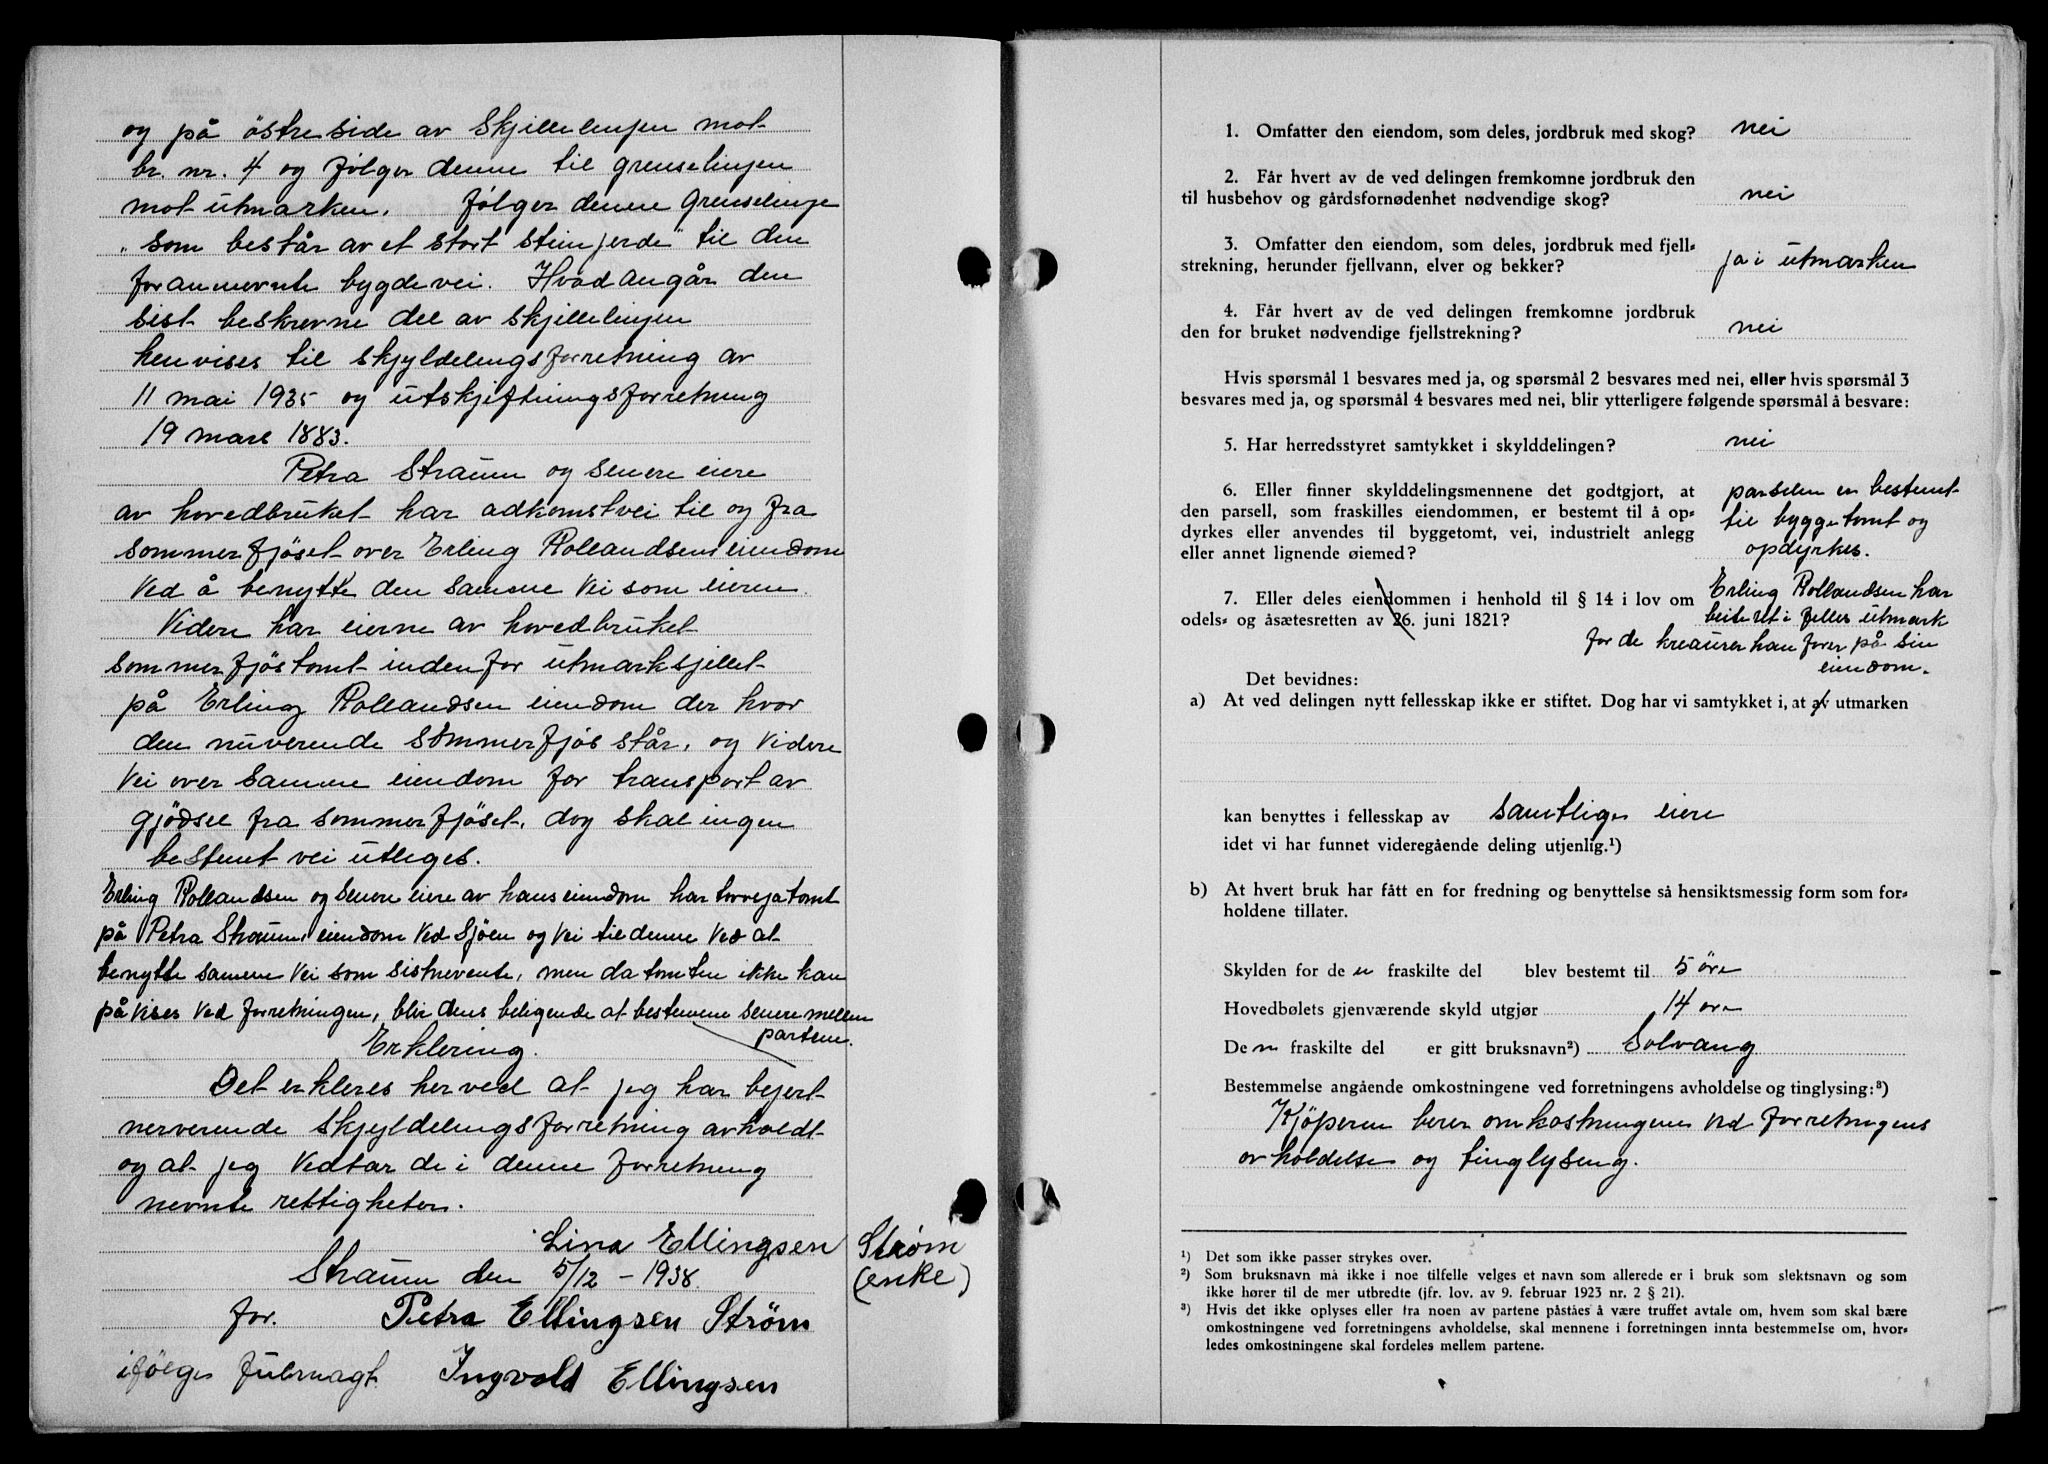 og på östre side av skjillelinjen mot
br. nr. 4 og følger denne til grenselinjen
mot utmarken. Følger denne grenselinje
"som består av et stort steinjerde" til den
forannevnte bygdevei. Hvad angår den
sist beskrevne del av skjillelinjen
henvises til skjyldelingsforretning av
11 mai 1935 og utskjiftningsforretning
19 mars 1883.
Petra Straum og senere eiere
av hovedbruket har adkomstvei til og fra
sommerfjöset over Erling Rollandsens eiendom
ved å benytte den samme vei som eieren.
Videre har eierne av hovedbruket
sommerfjöstomt indenfor utmarksjillet
på Erling Rollandsen eiendom der hvor
den nuverende sommerfjös står, og videre
vei over samme eiendom for transport av
gjödsel fra sommerfjöset, dog skal ingen
bestemt vei utleges.
Erling Rollandsen og senere eiere av hans eiendom har torvsjatomt
på Petra Straums eiendom ved sjöen og vei til denne ved at
benytte samme vei som sistnevnte, men da tomten ikke kan
påvises ved forretningen, blir dens beligende at bestemme senere mellem
partene.
Erklering.
Det erkleres herved at jeg har bejert
nerverende skjyldelingsforretning avholdt
og at jeg vedtar de i denne forretning
nevnte rettigheter.
Lina Ellingsen Strøm
Straum den 5/12 - 1938. (enke)
for. Petra Ellingsen Strøm
ifölge fulmagt. Ingvold Ellingsen
1. Omfatter den eiendom, som deles, jordbruk med skog? nei
2. Får hvert av de ved delingen fremkomne jordbruk den
til husbehov og gårdsfornødenhet nødvendige skog? nei
3. Omfatter den eiendom, som deles, jordbruk med fjell-
strekning, herunder fjellvann, elver og bekker? ja i utmarken
4. Får hvert av de ved delingen fremkomne jordbruk
den for bruket nødvendige fjellstrekning? nei
Hvis spørsmål 1 besvares med ja, og spørsmål 2 besvares med nei, eller hvis spørsmål 3
besvares med ja, og spørsmål 4 besvares med nei, blir ytterligere følgende spørsmål å besvare:
5. Har herredsstyret samtykket i skylddelingen? nei
6. Eller finner skylddelingsmennene det godtgjort, at
den parsell, som fraskilles eiendommen, er bestemt til å op-
dyrkes eller anvendes til byggetomt, vei, industrielt anlegg
eller annet lignende øiemed?
parselen er bestemt
til byggetomt og
opdyrkes.
7. Eller deles eiendommen i henhold til § 14 i lov om
odels- og åsætesretten av 26. juni 1821?
Erling Rollandsen har
beiteret i felles utmark
for de kreaturer han forer på sin
eiendom.
Det bevidnes:
a) At ved delingen nytt fellesskap ikke er stiftet. Dog har vi samtykket i, at av utmarken
kan benyttes i fellesskap av samtlige eiere
idet vi har funnet videregående deling utjenlig.¹)
b) At hvert bruk har fått en for fredning og benyttelse så hensiktsmessig form som for-
holdene tillater.
Skylden for de n fraskilte del blev bestemt til 5 öre
Hovedbølets gjenværende skyld utgjør 14 öre
De n fraskilte del er gitt bruksnavn²) Solvang
Bestemmelse angående omkostningene ved forretningens avholdelse og tinglysing:³)
Kjöperen berer omkostningene ved forretningens
avholdelse og tinglysing.
¹) Det som ikke passer strykes over.
²) Som bruksnavn må ikke i noe tilfelle velges et navn som allerede er i bruk som slektsnavn og som
ikke hører til de mer utbredte (jfr. lov. av 9. februar 1923 nr. 2 § 21).
³) Hvis det ikke oplyses eller fra noen av partene påståes å være truffet avtale om, hvem som skal bære
omkostningene ved forretningens avholdelse, skal mennene i forretningen innta bestemmelse om, hvor-
ledes omkostningene skal fordeles mellem partene.